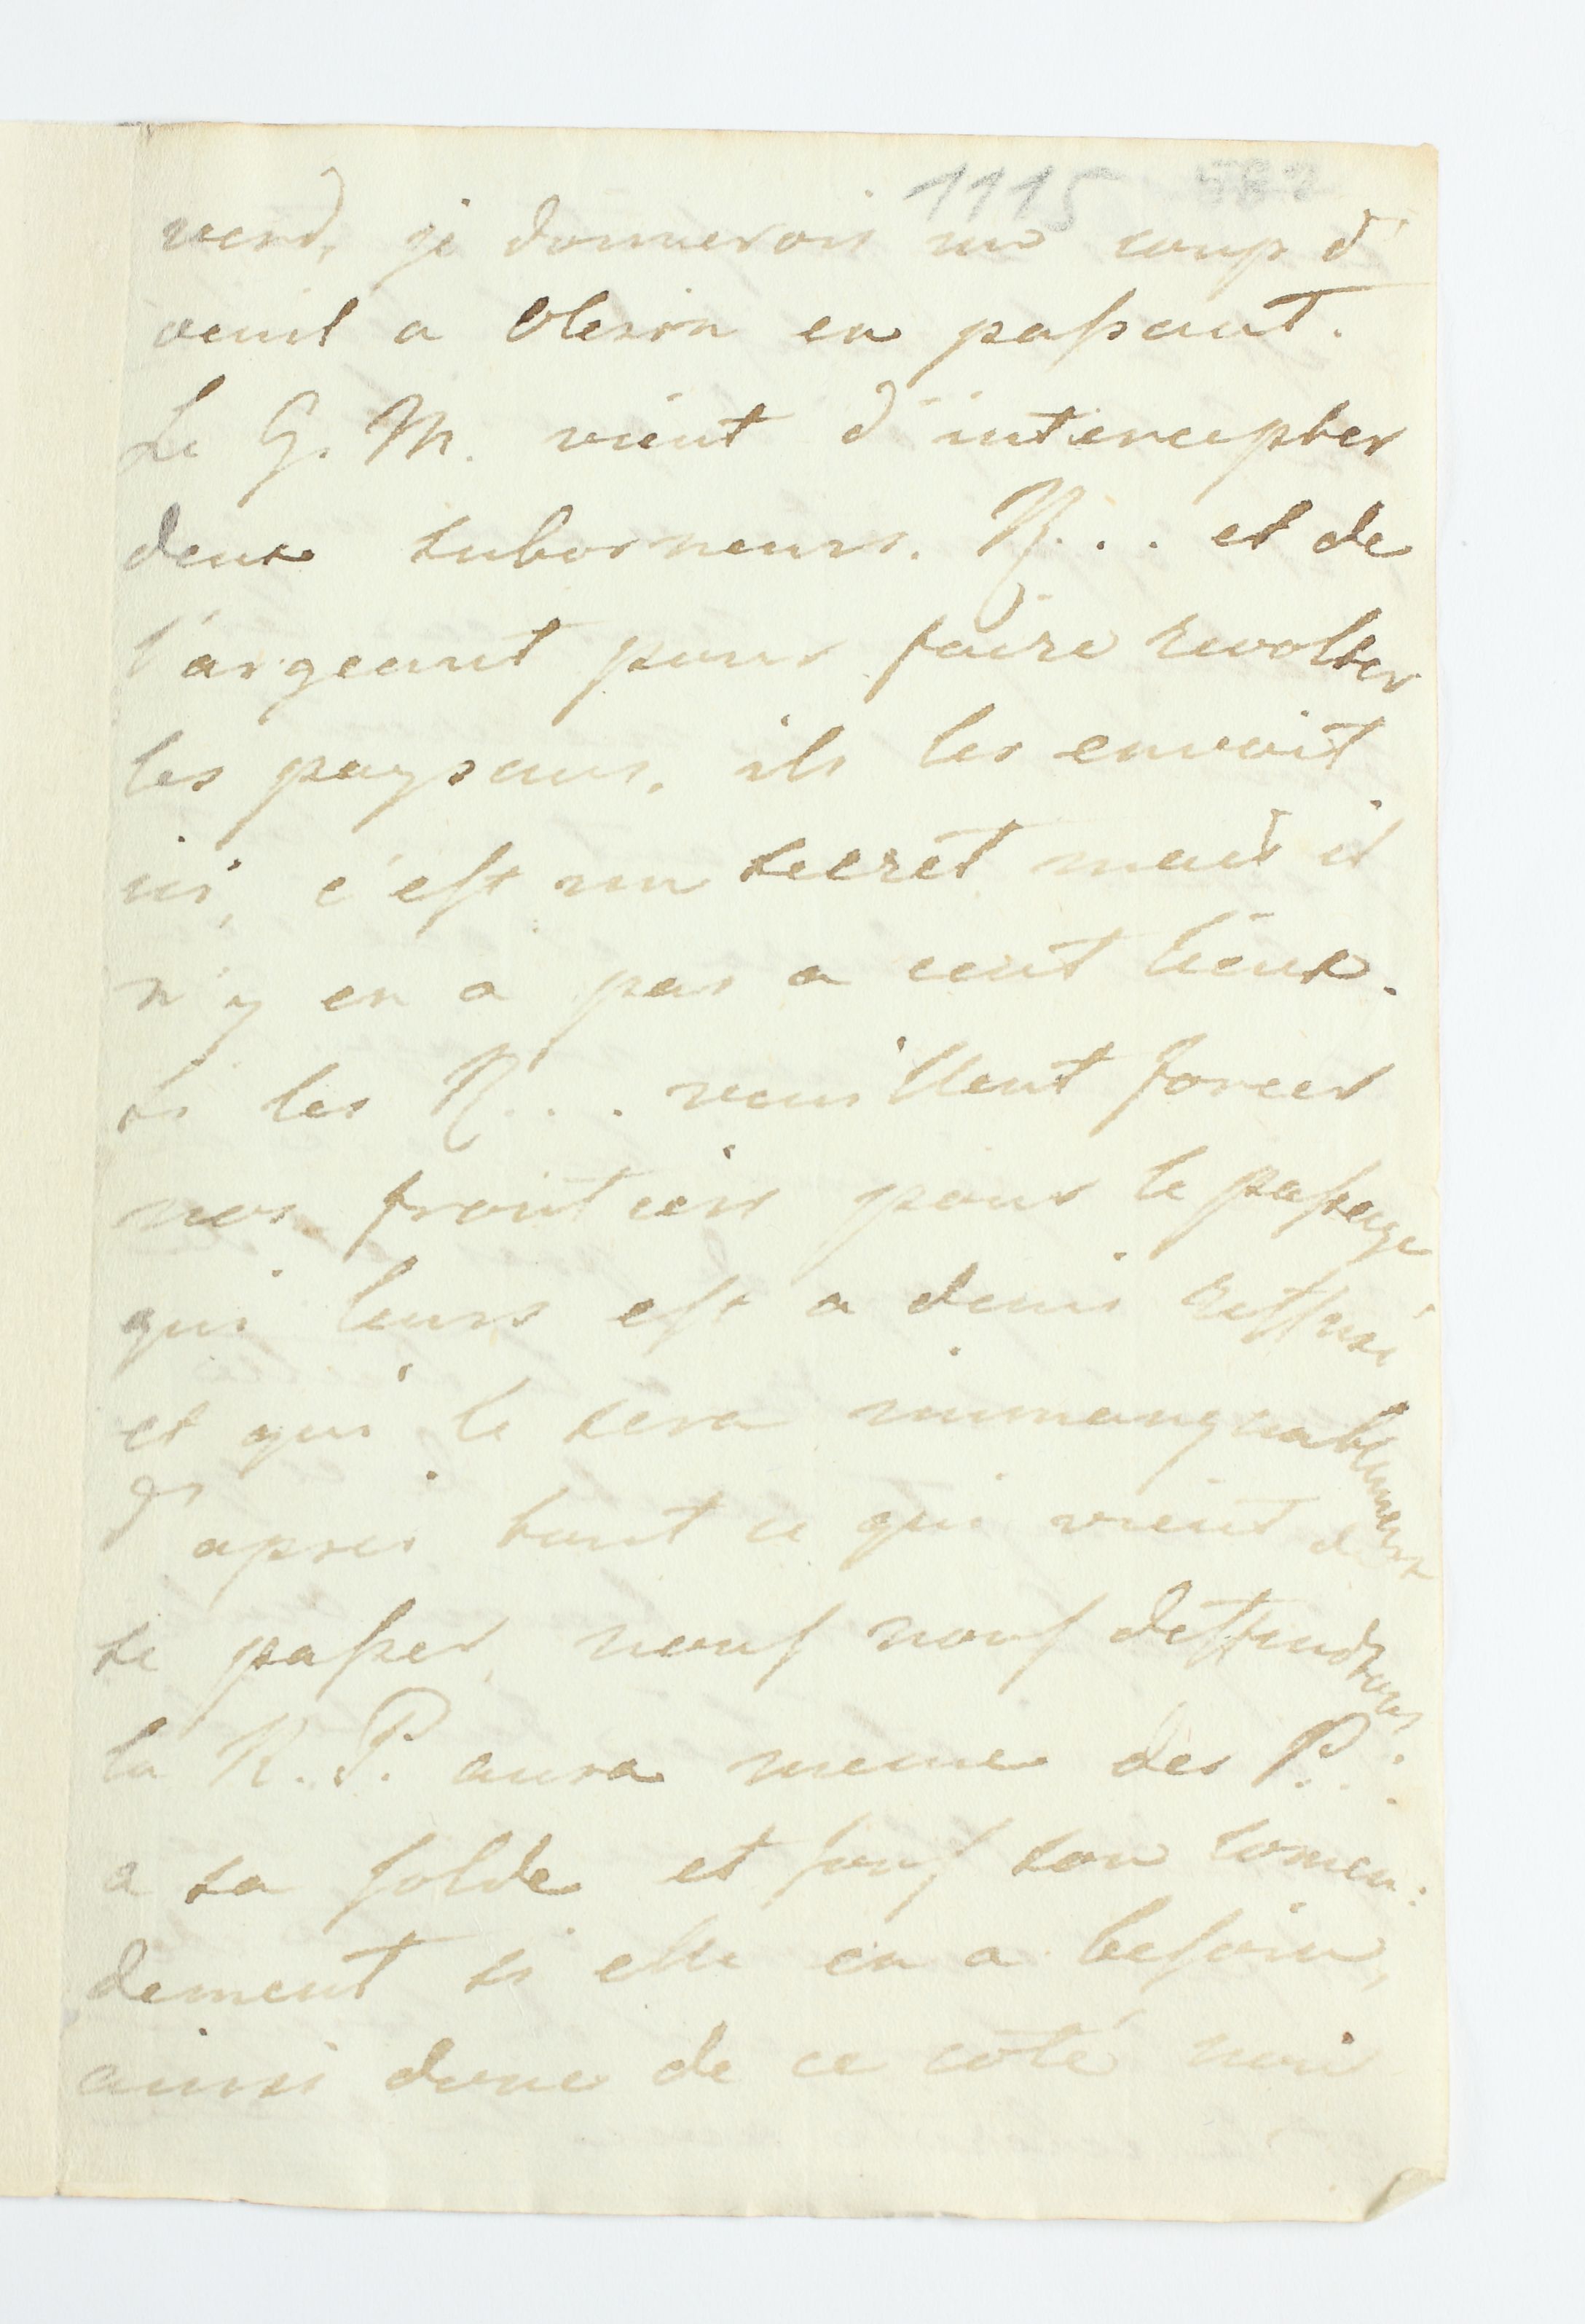 1115 582
verd, je donnerois un coup d'
oeuil a Olesin en passant.
Le G. M. vient d'intercepter
deux suborneurs. R... et de
l'argeant pour faire revolter
les paysans, ils les envoit
ici, c'est un secret mais il
n'y en a pas a cent lieux.
si les R... veuillent forcer
nos frontieis pour le passage
qui leurs est a demi reffusé
et qui le sera immanquablement
d'apres tout ce qui vient de
se passer, nous nous deffendrons
la R. P. aura meme des P...
a sa solde et sous son comen:
dement si elle en a besoin,
ainsi donc de ce coté noir